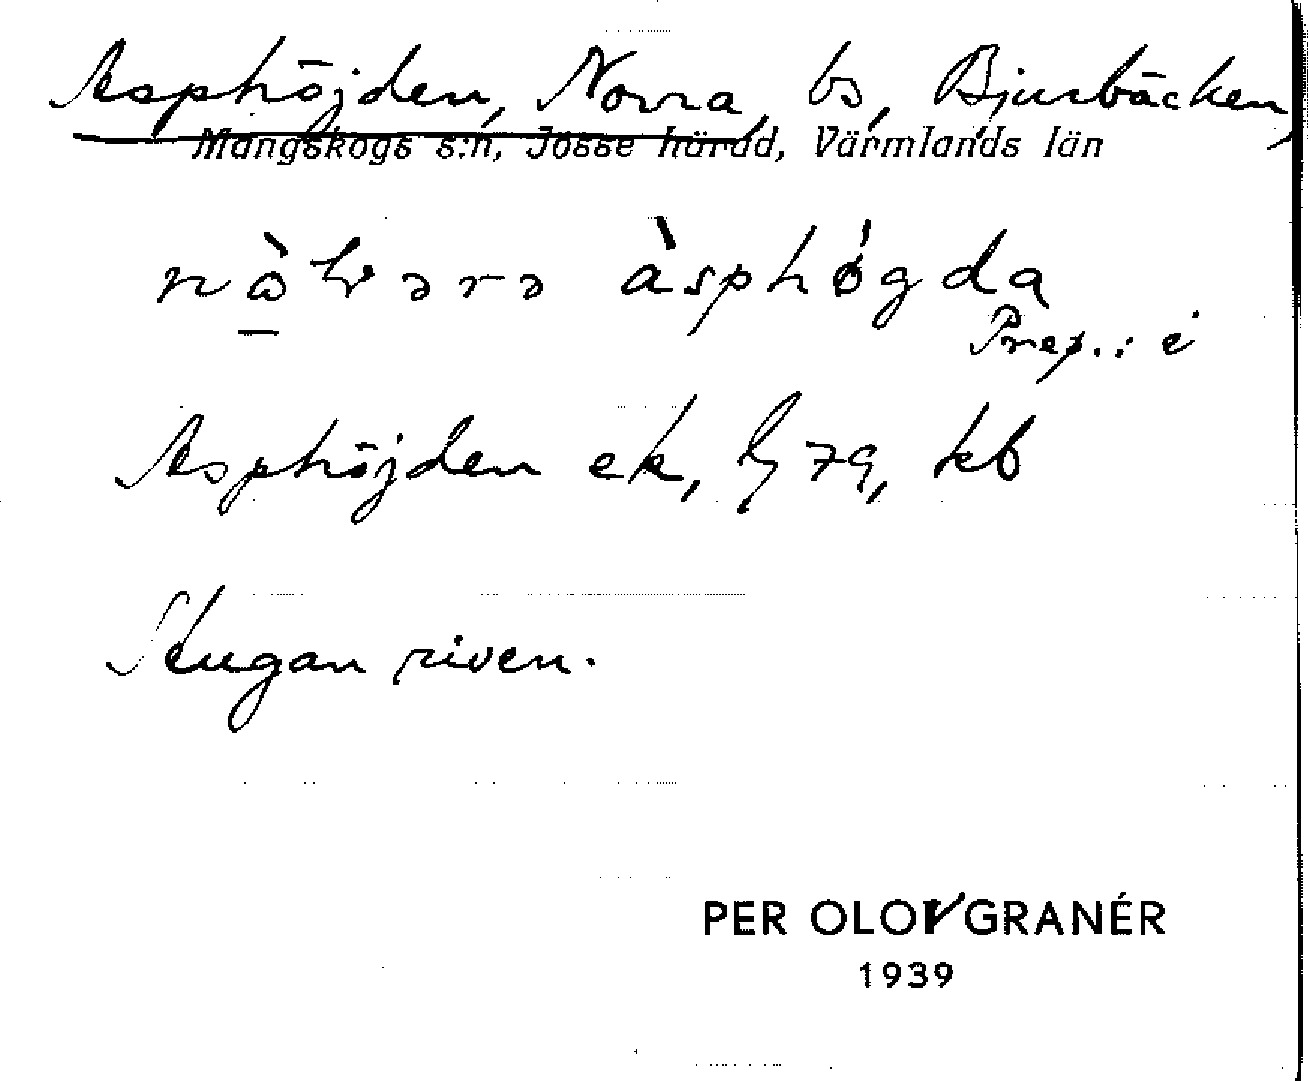 Asphöjden, Norra, bs, Bjurbäcken,
Mangskogs s:n, Jösse härad, Värmlands län
àsphǿgda
Prep.: i
Asphöjden ek, G 79, kb
Stugan riven.
PER OLOV GRANÉR
1939